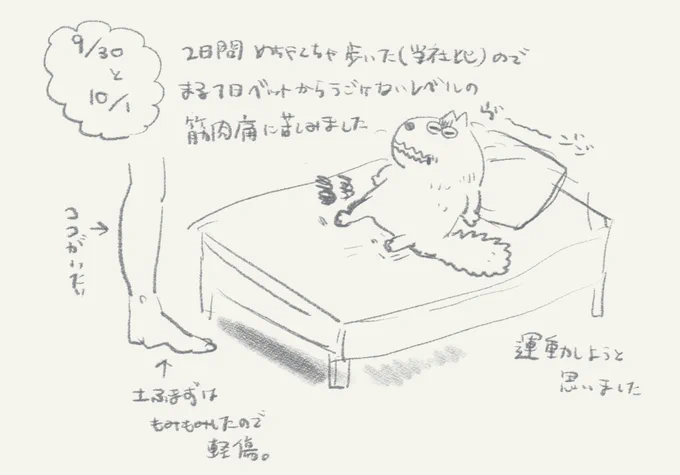 9/30
と
10/1
2日間 めちゃくちゃ歩いた(当社比)ので
まる1日ベットからうごけないレベルの
筋肉痛に苦しみました
ヴ〜
ココがいたい
土ふまずは
もみもみしたので
軽傷。
運動しようと
思いました